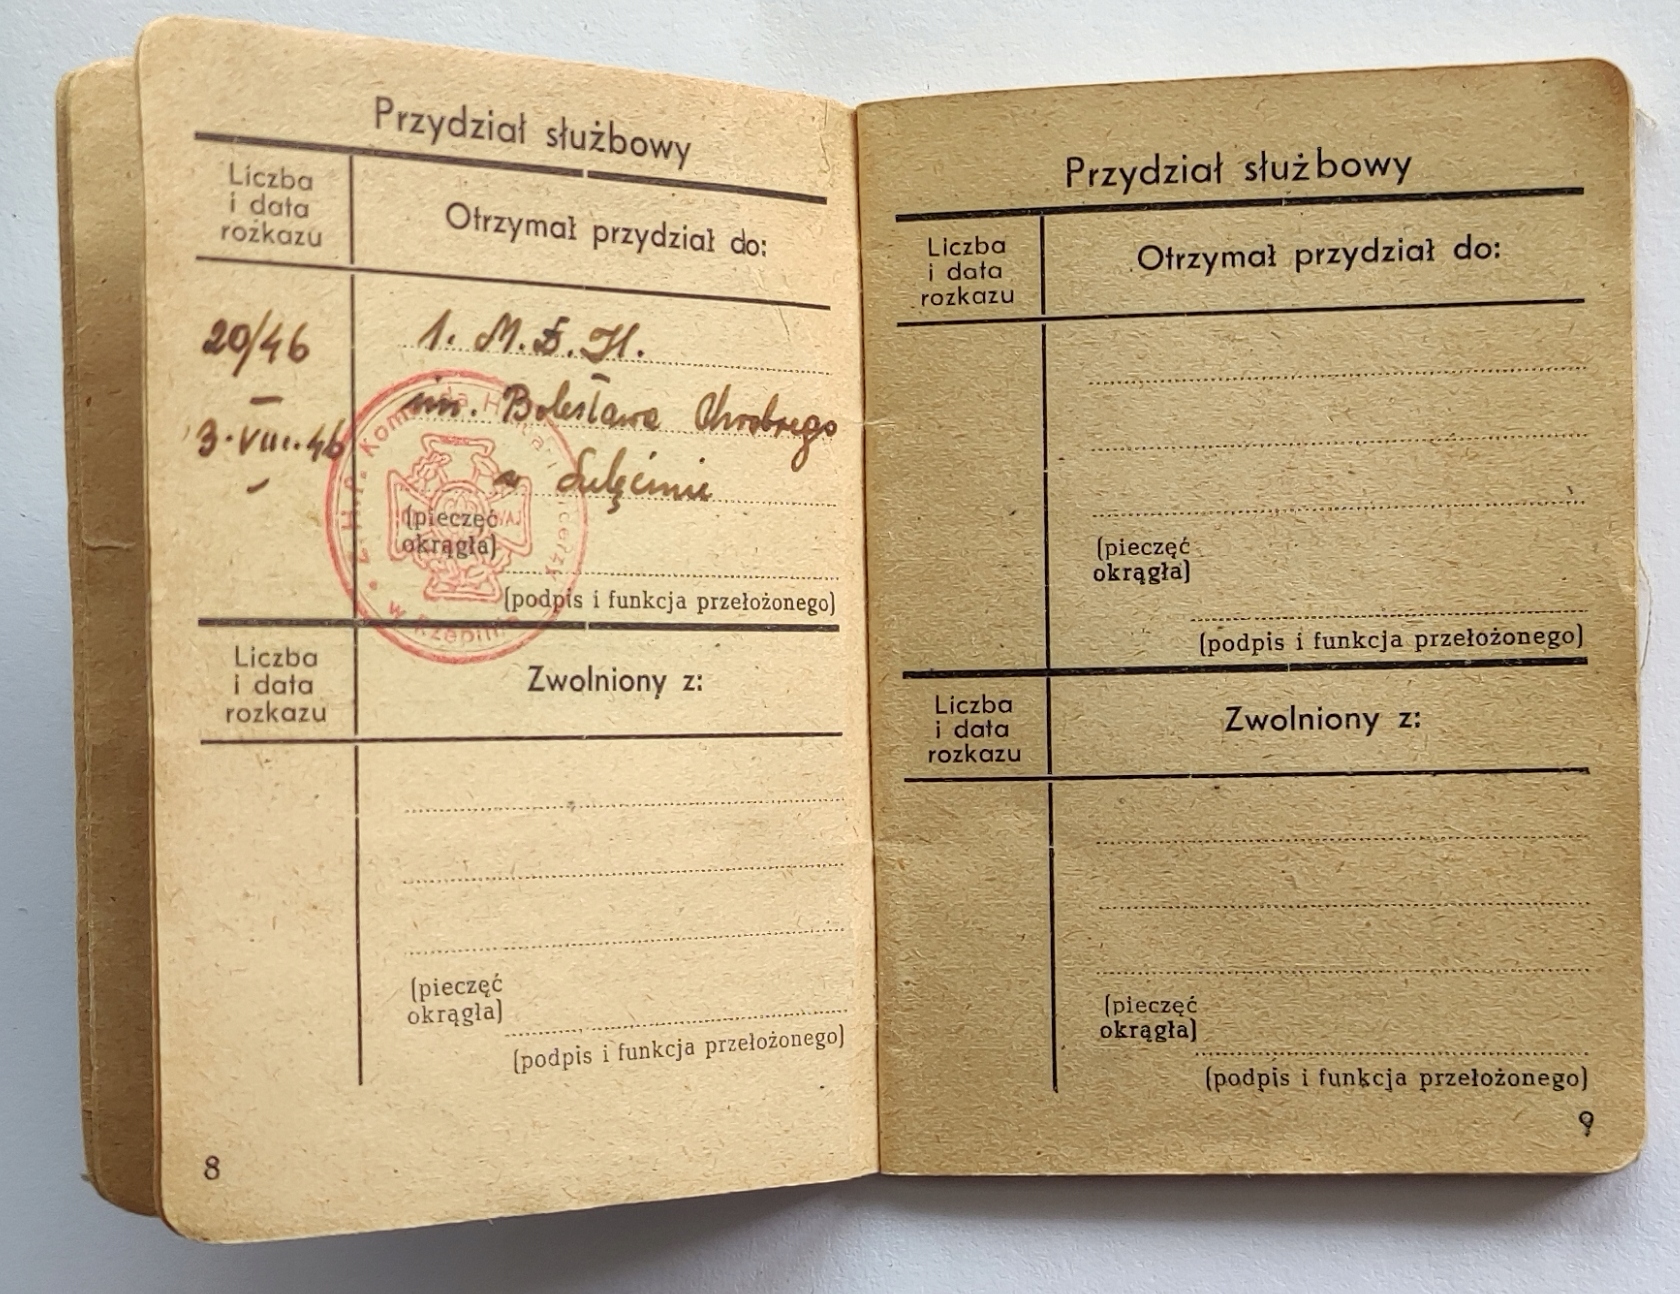 Przydział służbowy
Liczba
i data
rozkazu
Otrzymał przydział do:
20/46
—
3.VIII.46
1. M.D.H.
im. Bolesława Chrobrego
w Sulęcinie
Z.H.P. Komenda Hufca Harcerzy
w Rzepinie
(pieczęć
okrągła)
(podpis i funkcja przełożonego)
Liczba
i data
rozkazu
Zwolniony z:
(pieczęć
okrągła)
(podpis i funkcja przełożonego)
8
Przydział służbowy
Liczba
i data
rozkazu
Otrzymał przydział do:
(pieczęć
okrągła)
(podpis i funkcja przełożonego)
Liczba
i data
rozkazu
Zwolniony z:
(pieczęć
okrągła)
(podpis i funkcja przełożonego)
9